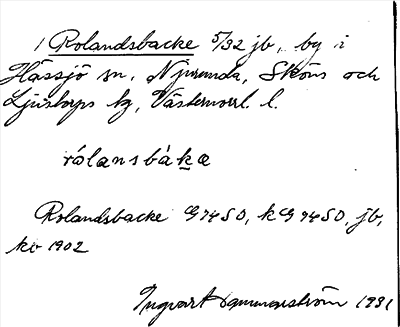 1 Rolandsbacke 5/32 jb, by i
Hässjö sn, Njurunda, Sköns och
Ljustorps tg, Västernorrl. l.
rólansbàka
Rolandsbacke G94SO, kG94SO, jb,
kb 1902
Ingvart Hammarström 1931